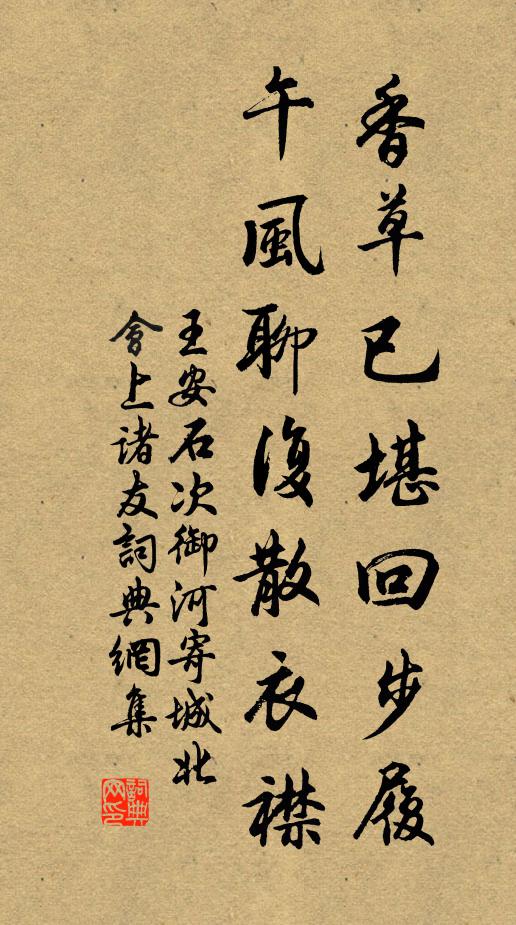 香草已堪回步履
午風聊復散衣襟
王安石次御河寄城北
會上諸友詞典網集
詞典
网印